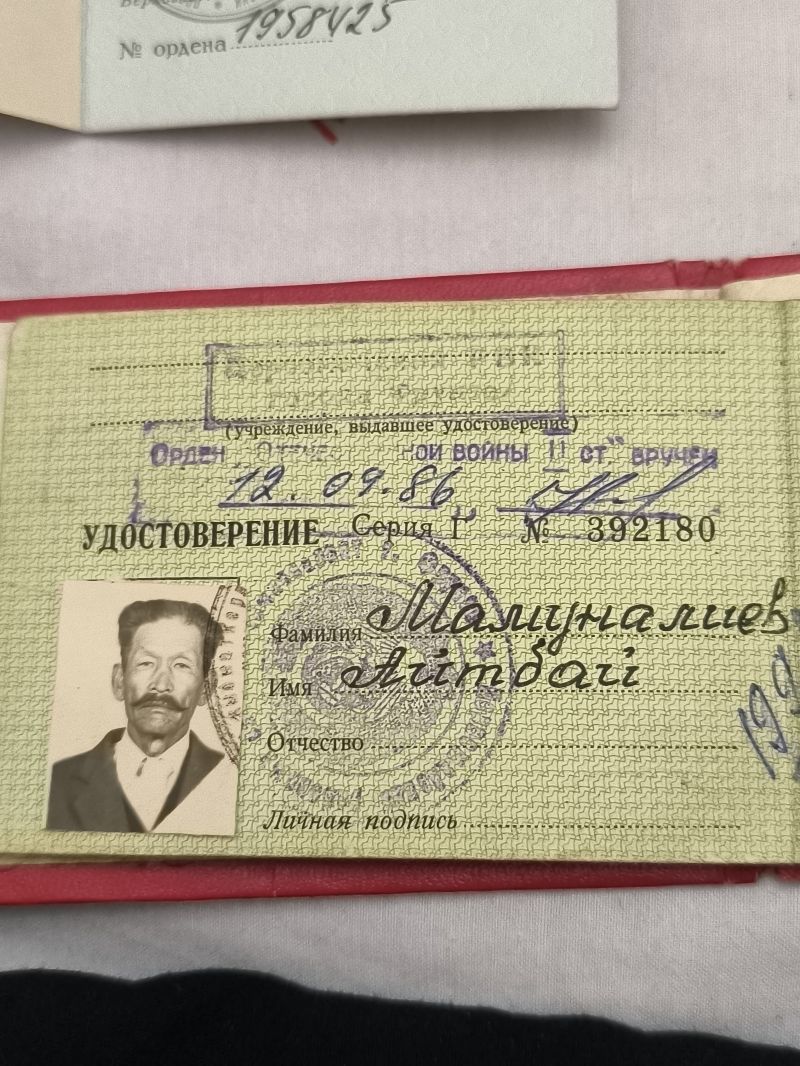 № ордена 1958425
(учреждение, выдавшее удостоверение)
Орден Отечественной войны II ст вручен
12.09.86
УДОСТОВЕРЕНИЕ Серия Г № 392180
Фамилия Мамуналиев
Имя Айтбай
Отчество
Личная подпись